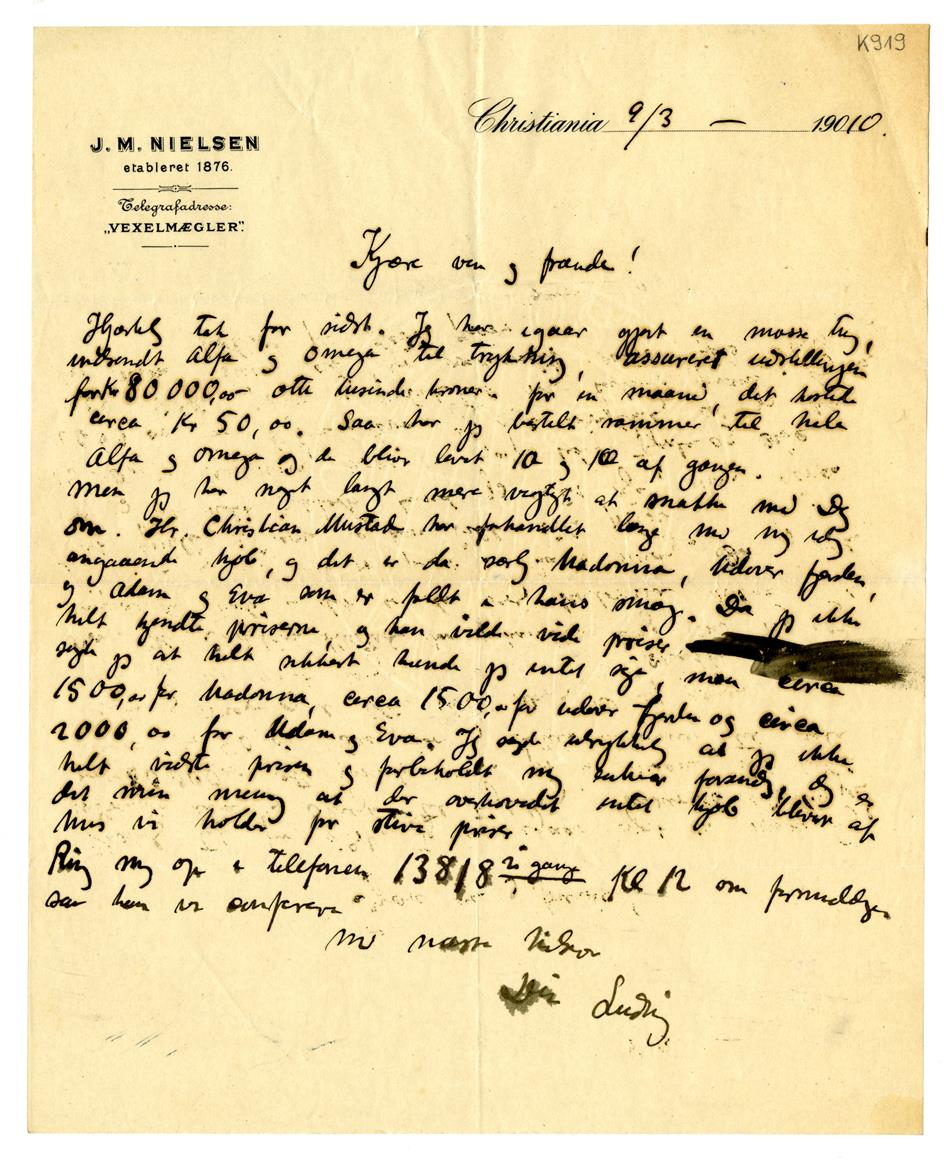 K919
Christiania 9/3 — 19010.
J. M. NIELSEN
etableret 1876.
Telegrafadresse:
„VEXELMÆGLER".
Kjære ven og frænde!
Hjærtelig tak for sidst. Jeg har igaar gjort en masse ting,
indsendt Alfa og Omega til trykning, assureret udstillingen
for Kr 80 000,00 otti tusinde kroner. for en maaned, det kosted
circa Kr 50,00. Saa har jeg bestilt rammer til hele
Alfa og Omega og de bliver levet 10 og 10 af gangen.
Men jeg har noget langt mere vigtigt at snakke med Dig
om. Hr. Christian Mustad har forhandlet længe med mig idag
angaaende kjøb, og det er da særlig Madonna, Udover fjorden,
og Adam og Eva som er faldt i hans smag. Da jeg ikke
helt kjendte priserne, og han vilde vide priser
sagde jeg at helt sikkert kunde jeg intet sige, men circa
1500,00 for Madonna, circa 1500,00 for udover fjorden og circa
2000,00 for Adam og Eva. Jeg sagde udrykkelig at jeg ikke
helt vidste prisen og forbeholdt mig enhver forandring, dog er
det min mening at der overhovedet intet kjøb bliver af
hvis vi holder for stive priser
Ring mig op i telefonen 13818 2 gang Kl 12 om formiddagen
saa kan vi conferere
med næste hilsen
Din Ludvig.